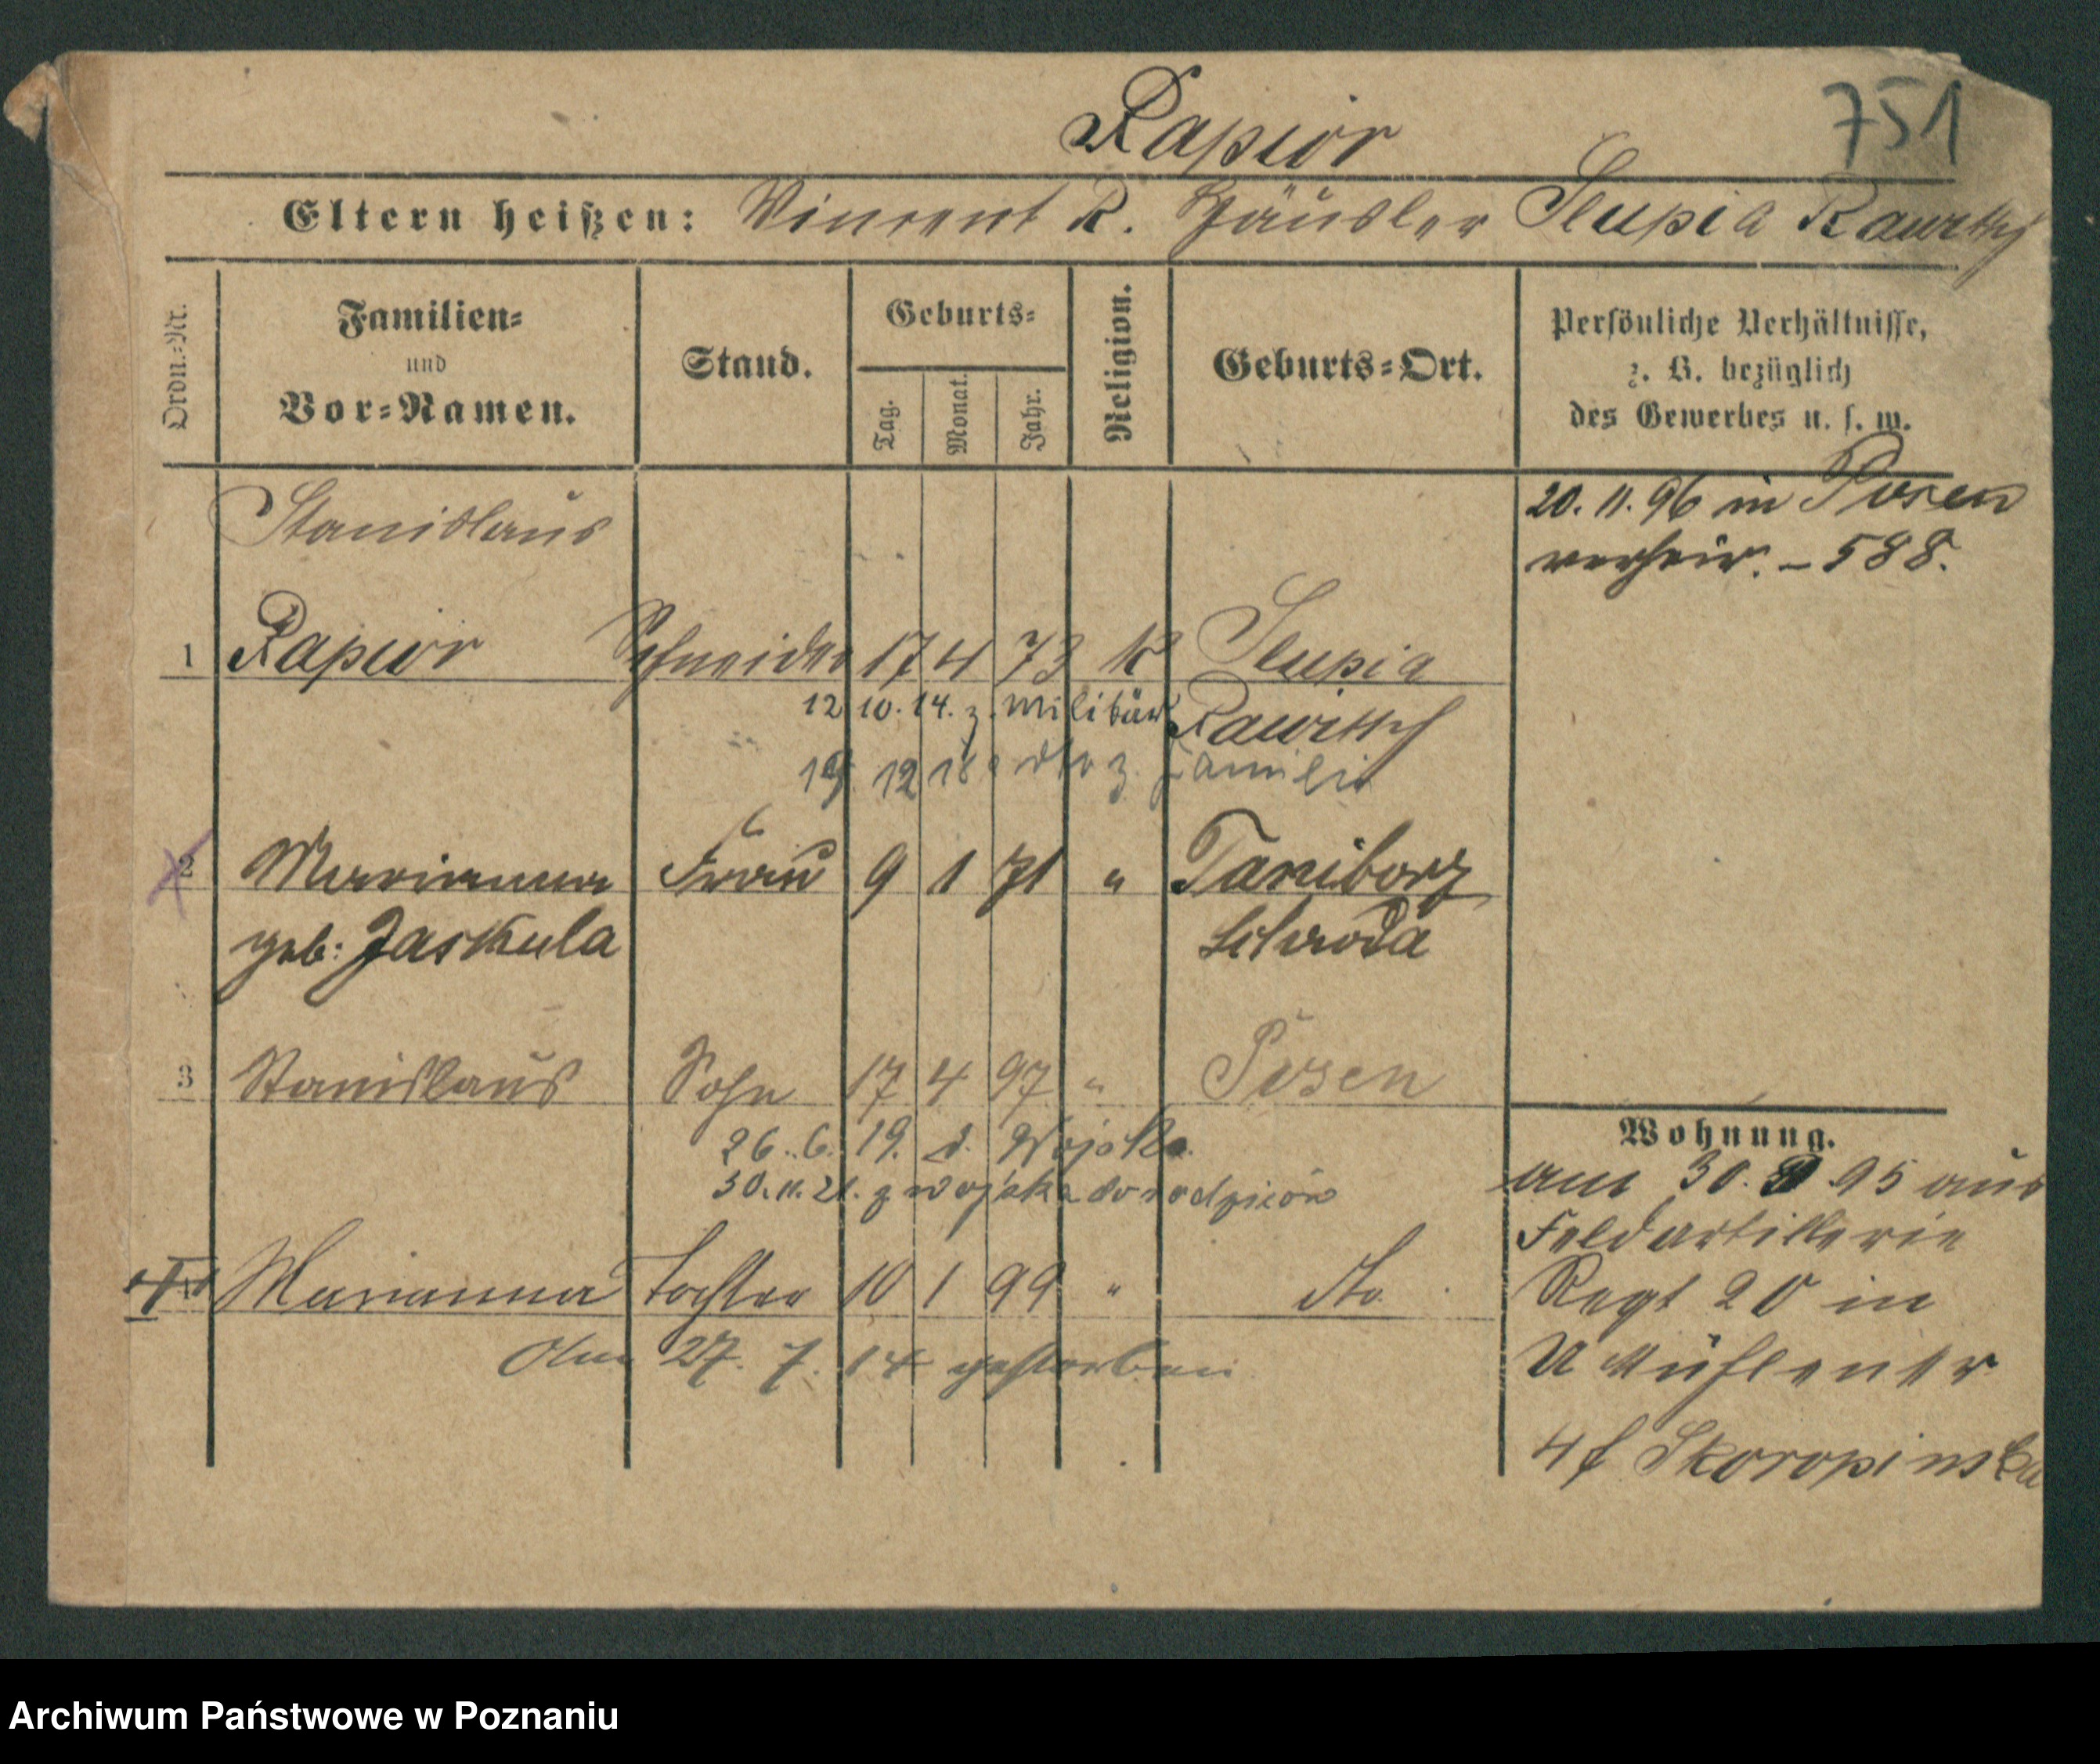 Rapior
751
Eltern heißen: Vincent R. Häusler Slupia Rawitsch
Ordn.-Nr.
Familien-
und
Vor-Namen.
Stand.
Geburts-
Tag.
Monat.
Jahr.
Religion.
Geburts-Ort.
Persönliche Verhältnisse,
z. B. bezüglich
des Gewerbes u. s. w.
20. 11. 96 in Posen
verheir. – 588.
Stanislaus
1 Rapior Schneider 17 4 73 k Slupia
12 10. 14. z. Militär Rawitsch
19. 12 18 z. Familie
2 Marianna Frau 9 1 71 " Taniborz
geb: Jaskula Schroda
3 Stanislaus Sohn 17 4 97 " Posen
26. 6. 19. d. Wojska.
30. 11. 21. z wojska do rodziców
4 Marianna Tochter 10 1 99 " dto.
27. 7. 14 gestorben
Wohnung.
am 30. 95 aus
Feldartillerie
Regt 20 in
U Mühlenstr
4 f Skoropinska
Archiwum Państwowe w Poznaniu